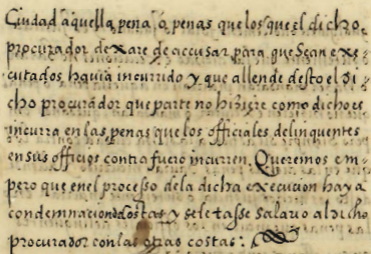 Ciudad aquella pena ó penas que los que el dicho
procurador dexare de accusar para que sean exe-
cutados, hauia incurrido y que allende desto el di-
cho procurador que parte no hiziere como dicho es
incurra en las penas que los officiales delinquentes
en sus officios contra fuero incurren. Queremos em-
pero que en el processo de la dicha execucion haya
condemnacion de costas y se le tasse salario al dicho
procurador con las otras costas.